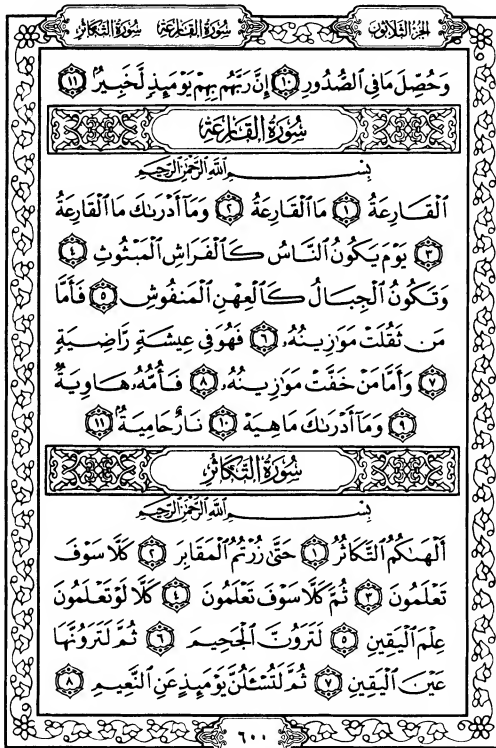 الجزء الثلاثون سورة القارعة سورة التكاثر
وَحُصِّلَ مَا فِي ٱلصُّدُورِ ١٠ إِنَّ رَبَّهُم بِهِمْ يَوْمَئِذٍ لَّخَبِيرٌۢ ١١
سورة القارعة
بِسْمِ ٱللَّهِ ٱلرَّحْمَٰنِ ٱلرَّحِيمِ
ٱلْقَارِعَةُ ١ مَا ٱلْقَارِعَةُ ٢ وَمَآ أَدْرَىٰكَ مَا ٱلْقَارِعَةُ
٣ يَوْمَ يَكُونُ ٱلنَّاسُ كَٱلْفَرَاشِ ٱلْمَبْثُوثِ ٤
وَتَكُونُ ٱلْجِبَالُ كَٱلْعِهْنِ ٱلْمَنفُوشِ ٥ فَأَمَّا
مَن ثَقُلَتْ مَوَٰزِينُهُۥ ٦ فَهُوَ فِي عِيشَةٍ رَّاضِيَةٍ
٧ وَأَمَّا مَنْ خَفَّتْ مَوَٰزِينُهُۥ ٨ فَأُمُّهُۥ هَاوِيَةٌ
٩ وَمَآ أَدْرَىٰكَ مَا هِيَهْ ١٠ نَارٌ حَامِيَةٌۢ ١١
سورة التكاثر
بِسْمِ ٱللَّهِ ٱلرَّحْمَٰنِ ٱلرَّحِيمِ
أَلْهَىٰكُمُ ٱلتَّكَاثُرُ ١ حَتَّىٰ زُرْتُمُ ٱلْمَقَابِرَ ٢ كَلَّا سَوْفَ
تَعْلَمُونَ ٣ ثُمَّ كَلَّا سَوْفَ تَعْلَمُونَ ٤ كَلَّا لَوْ تَعْلَمُونَ
عِلْمَ ٱلْيَقِينِ ٥ لَتَرَوُنَّ ٱلْجَحِيمَ ٦ ثُمَّ لَتَرَوُنَّهَا
عَيْنَ ٱلْيَقِينِ ٧ ثُمَّ لَتُسْـَٔلُنَّ يَوْمَئِذٍ عَنِ ٱلنَّعِيمِ ٨
٦٠٠